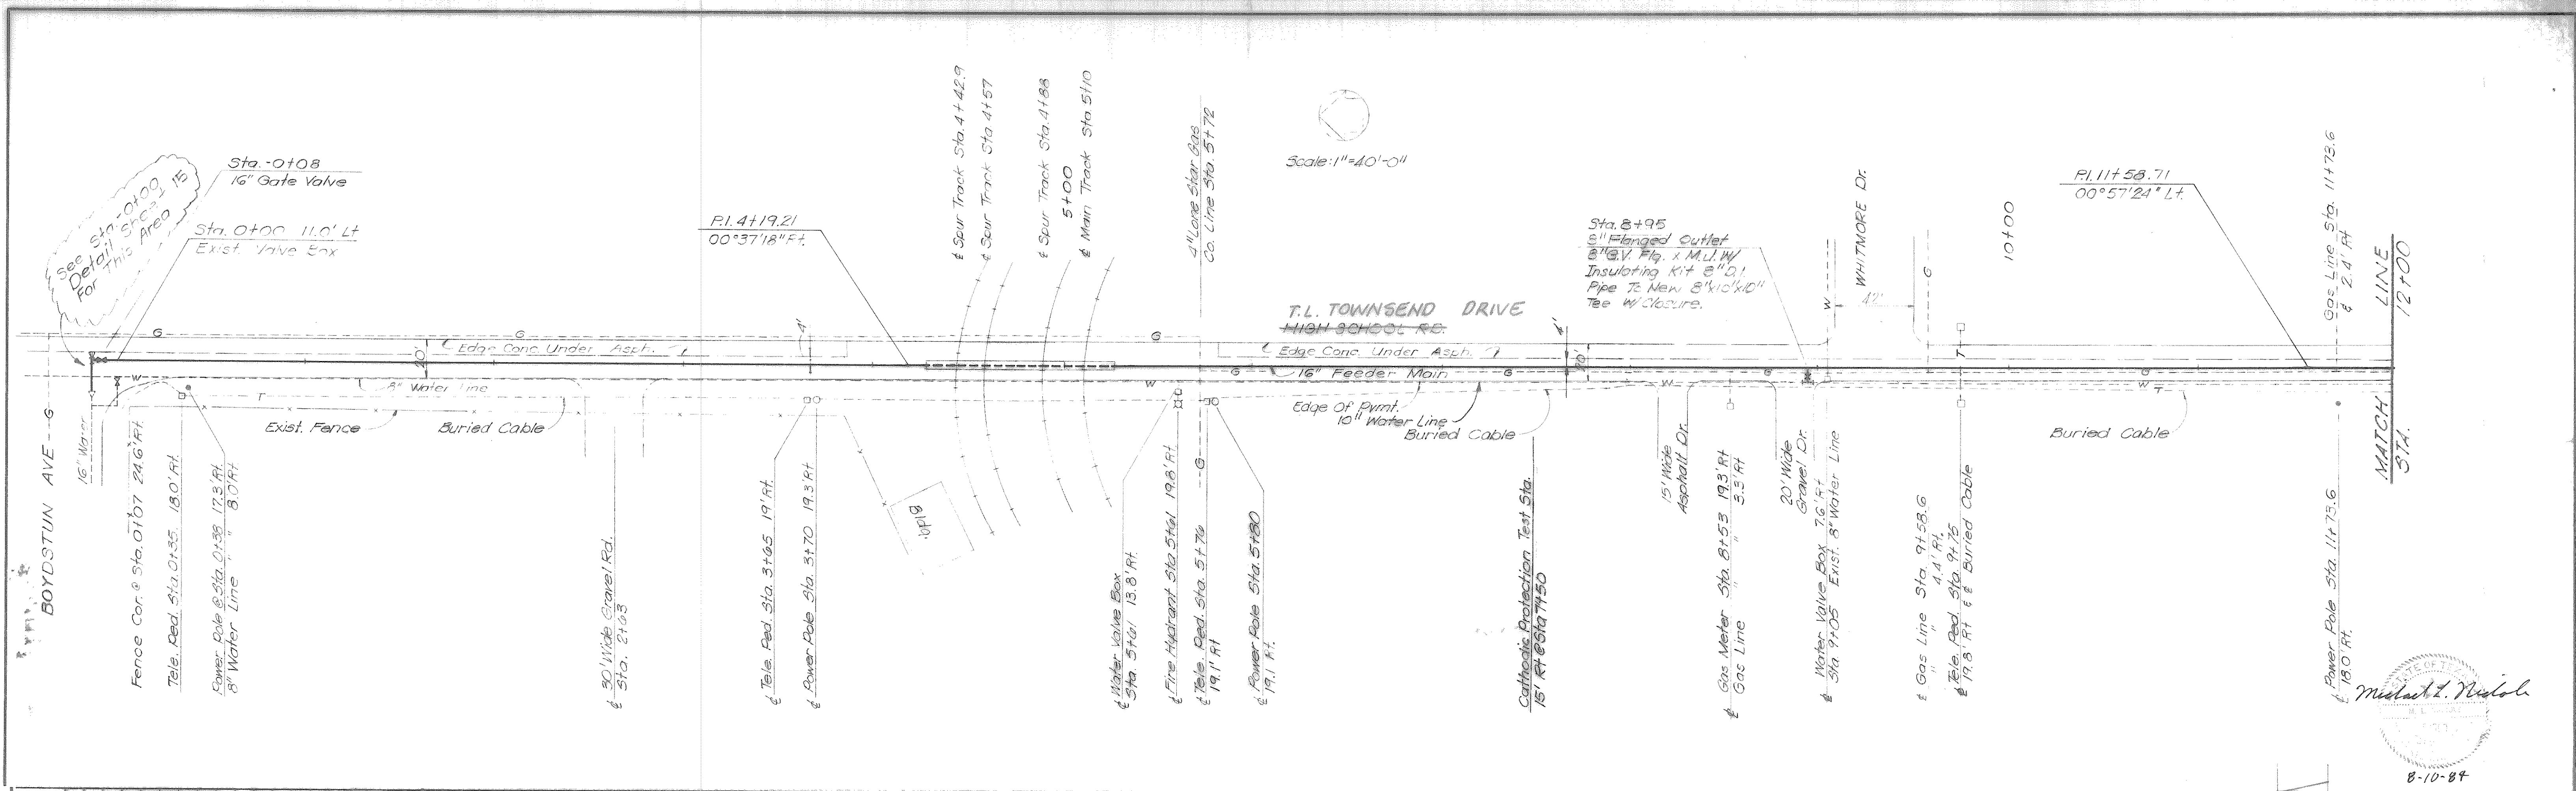 See Sta.-0+00
Detail Sheet 15
For This Area
Sta.-0+08
16" Gate Valve
Sta. 0+00 11.0' Lt
Exist. Valve Box
P.I. 4+19.21
00°37'18" Rt.
℄ Spur Track Sta. 4+42.9
℄ Spur Track Sta 4+57
℄ Spur Track Sta. 4+88
5+00
℄ Main Track Sta 5+10
4" Lone Star Gas
Co. Line Sta. 5+72
Scale: 1"=40'-0"
T.L. TOWNSEND DRIVE
HIGH SCHOOL RD.
Sta. 8+95
8" Flanged Outlet
8" G.V. Flg. x M.J. W/
Insulating Kit 8" D.I.
Pipe To New 8"x10"x10"
Tee W/Closure.
WHITMORE Dr.
42'
10+00
P.I. 11+58.71
00°57'24" Lt.
Gas Line Sta. 11+73.6
℄ 2.4' Rt
MATCH LINE
STA. 12+00
G
G
G
G
W
T
4'
4'
20'
20'
Edge Conc. Under Asph.
Edge Conc. Under Asph.
16" Feeder Main
G
G
G
G
W
8" Water Line
W
W
W
T
T
Exist. Fence
Buried Cable
Edge Of Pvmt.
10" Water Line
Buried Cable
Buried Cable
Bldg.
BOYDSTUN AVE
G
16" Water
Fence Cor. @ Sta. 0+07 24.6' Rt.
Tele. Ped. Sta. 0+35 18.0' Rt.
Power Pole @ Sta. 0+38 17.3' Rt.
8" Water Line " " 8.0' Rt
℄ 30' Wide Gravel Rd.
Sta. 2+63
℄ Tele. Ped. Sta. 3+65 19' Rt.
℄ Power Pole Sta. 3+70 19.3' Rt
℄ Water Valve Box
Sta. 5+61 13.8' Rt.
℄ Fire Hydrant Sta 5+61 19.8' Rt
G
℄ Tele. Ped. Sta. 5+76
19.1' Rt
℄ Power Pole Sta. 5+80
19.1 Rt.
Cathodic Protection Test Sta.
15' Rt @ Sta 7+50
15' Wide
Asphalt Dr.
℄ Gas Meter Sta. 8+53 19.3' Rt
Gas Line " " 3.3' Rt
20' Wide
Gravel Dr.
℄ Water Valve Box 7.6' Rt
Sta 9+05 Exist. 8" Water Line
℄ Gas Line Sta. 9+58.6
" 4.4' Rt.
Tele. Ped. Sta. 9+75
℄ 19.8' Rt & ℄ Buried Cable
℄ Power Pole Sta. 11+73.6
18.0' Rt.
Michael L. Nichols
STATE OF TEXAS
8-10-84